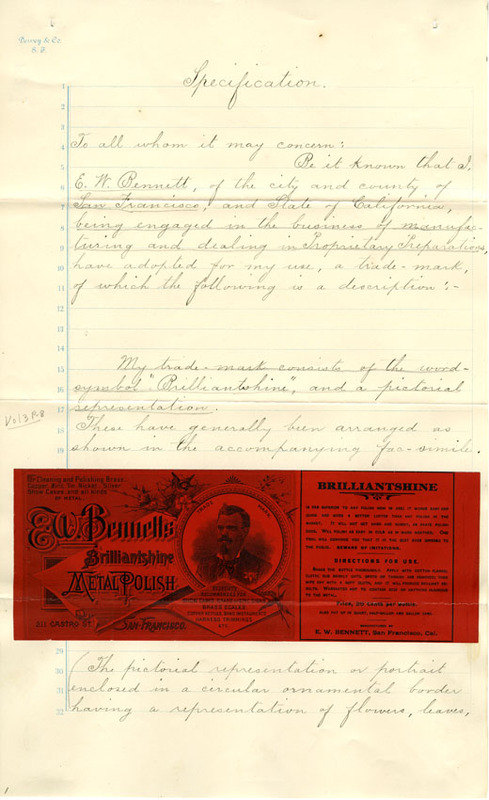 Dewey & Co.
S. F.
Specification.
To all whom it may concern:
Be it known that I,
E. W. Bennett, of the city and county of
San Francisco, and State of California,
being engaged in the business of manufac-
turing and dealing in Proprietary Preparations,
have adopted for my use, a trade-mark,
of which the following is a description:-
My trade-mark consists of the word-
symbol "Brilliantshine", and a pictorial
representation.
These have generally been arranged as
shown in the accompanying fac-simile.
Vol 3 P. 8
1
2
3
4
5
6
7
8
9
10
11
12
13
14
15
16
17
18
19
For Cleaning and Polishing Brass,
Copper, Zinc, Tin, Nickel, Silver,
Show Cases, and all kinds
of METAL.
E.W. Bennett's
Brilliantshine
METAL POLISH
TRADE MARK
211 CASTRO ST.
SAN FRANCISCO.
ESPECIALLY
RECOMMENDED FOR
BRASS SCALES
HARNESS TRIMMINGS
ETC.
BRILLIANTSHINE
BEWARE OF IMITATIONS.
DIRECTIONS FOR USE.
Price, 20 cents per bottle.
MANUFACTURED BY
E. W. BENNETT, San Francisco, Cal.
29
30
31
32
(The pictorial representation or portrait
enclosed in a circular ornamental border
having a representation of flowers, leaves,